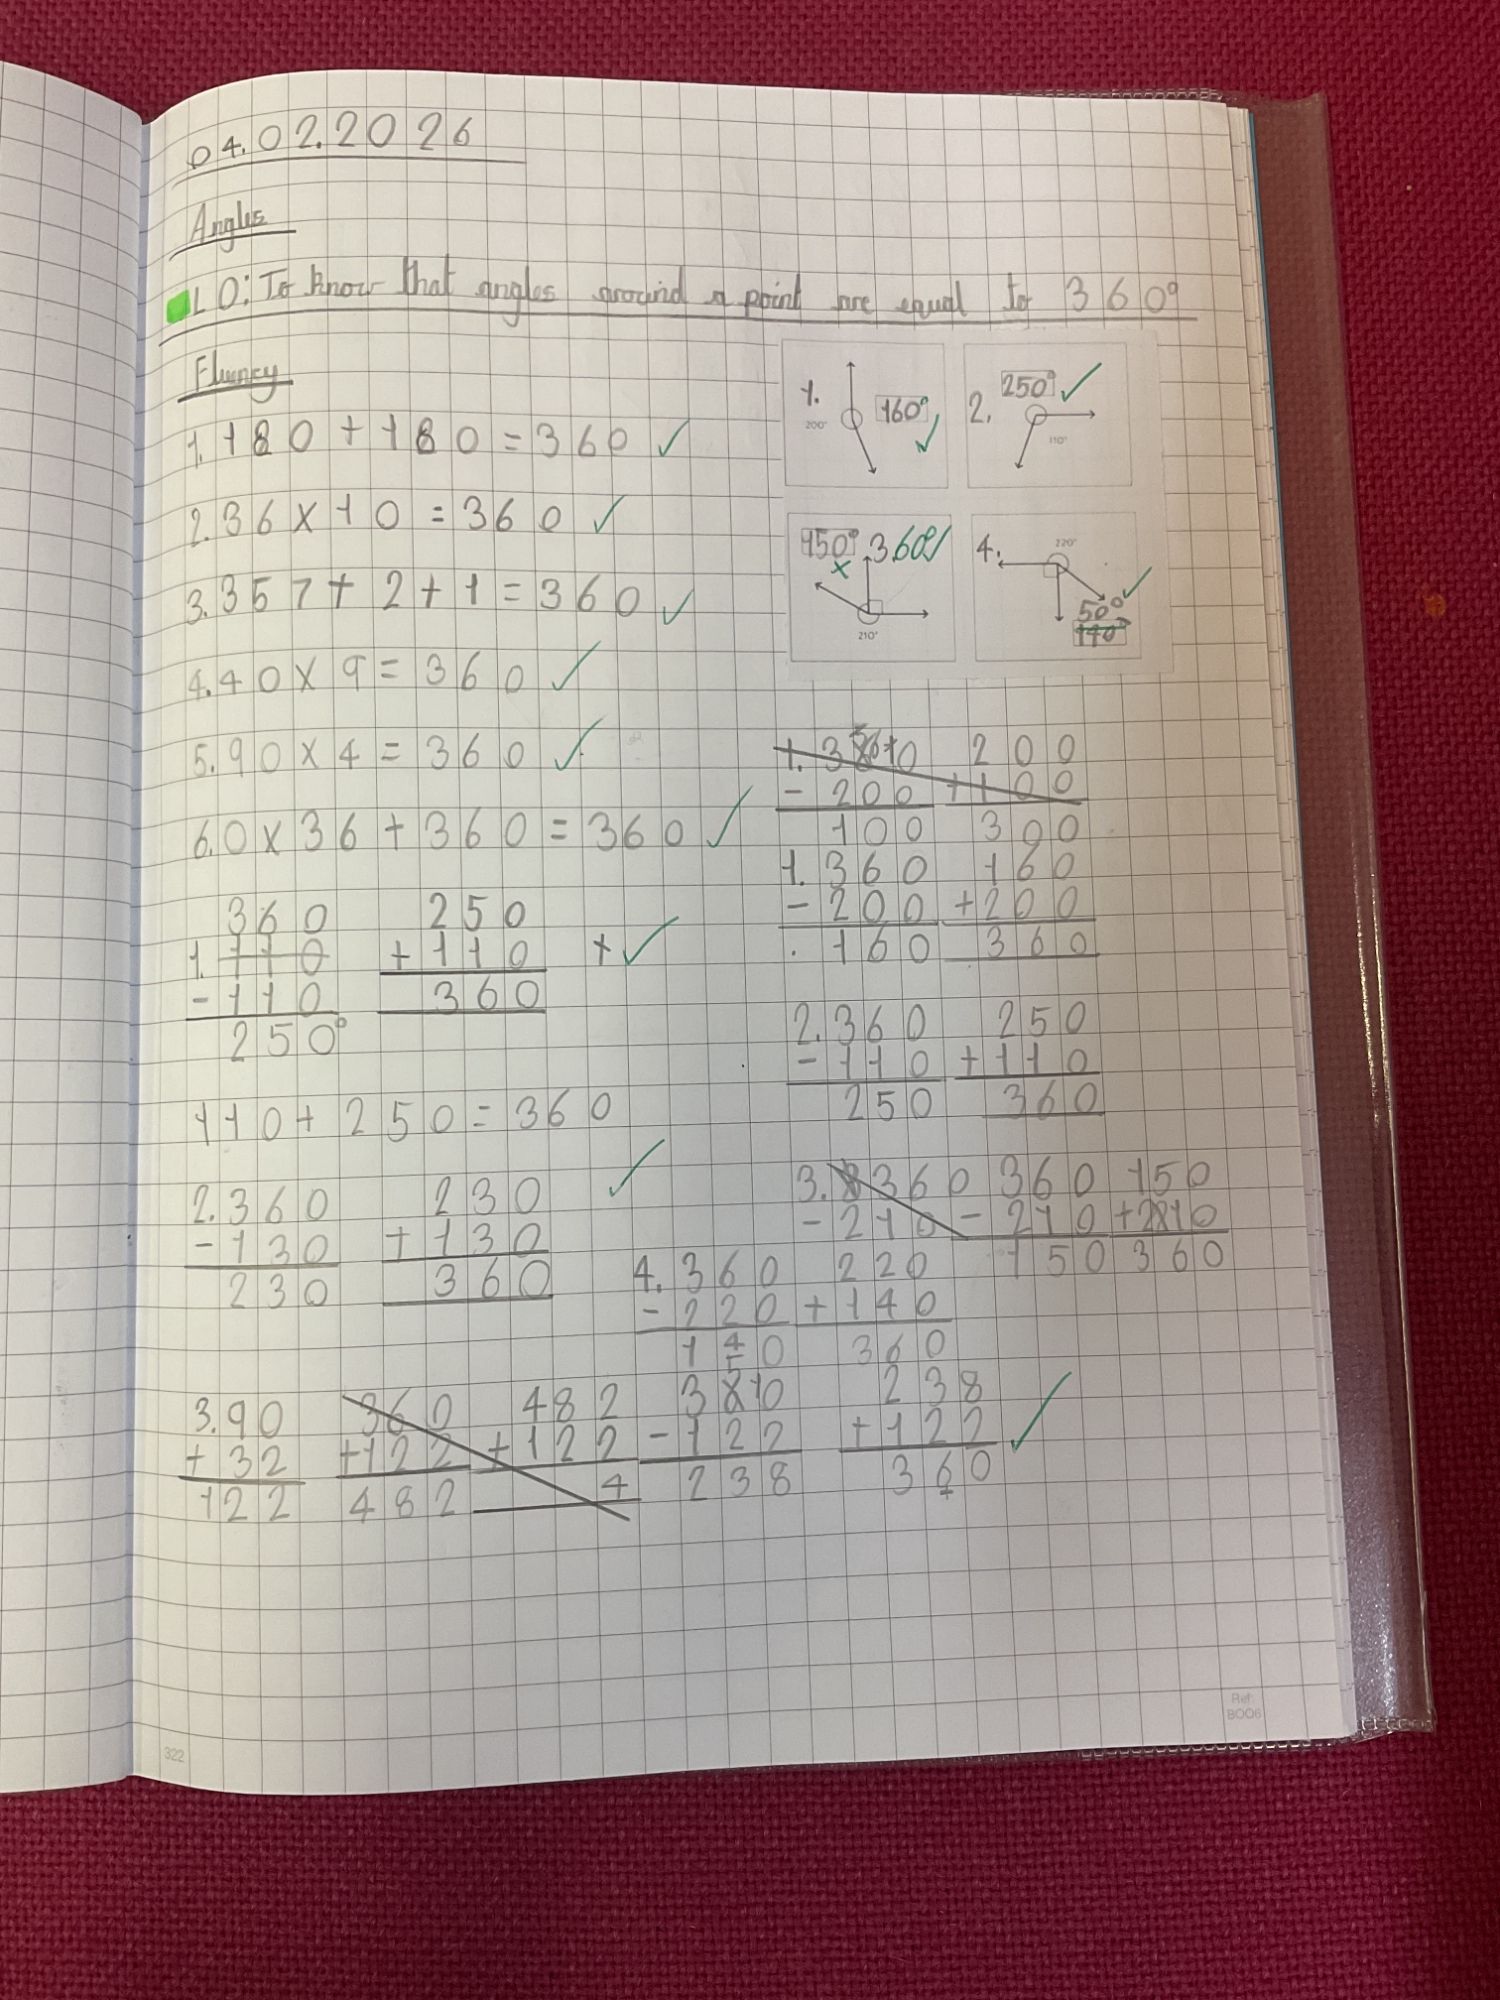 04.02.2026
Angles
LO: To know that angles around a point are equal to 360°
Fluency
1. 180 + 180 = 360 ✓
2. 36 x 10 = 360 ✓
3. 357 + 2 + 1 = 360 ✓
4. 40 x 9 = 360 ✓
5. 90 x 4 = 360 ✓
6. 0 x 36 + 360 = 360 ✓
360 250
1. 110 + 110 + ✓
- 110 360
250°
110 + 250 = 360
2. 360 230 ✓
- 130 + 130
230 360
3. 90 360 482 380 238
+ 32 + 122 + 122 - 122 + 122 ✓
122 482 4 238 360
1. 200° 160° ✓
2. 250° ✓
110°
150° x 360° ✓
210°
4. 220°
50° ✓
140
1. 3 0 200
- 200 + 100
100 300
1. 360 160
- 200 + 200
160 360
2. 360 250
- 110 + 110
250 360
3. 360 360 150
- 210 - 210 + 210
150 360
4. 360 220
- 220 + 140
140 360
322
Ref:
BOO6